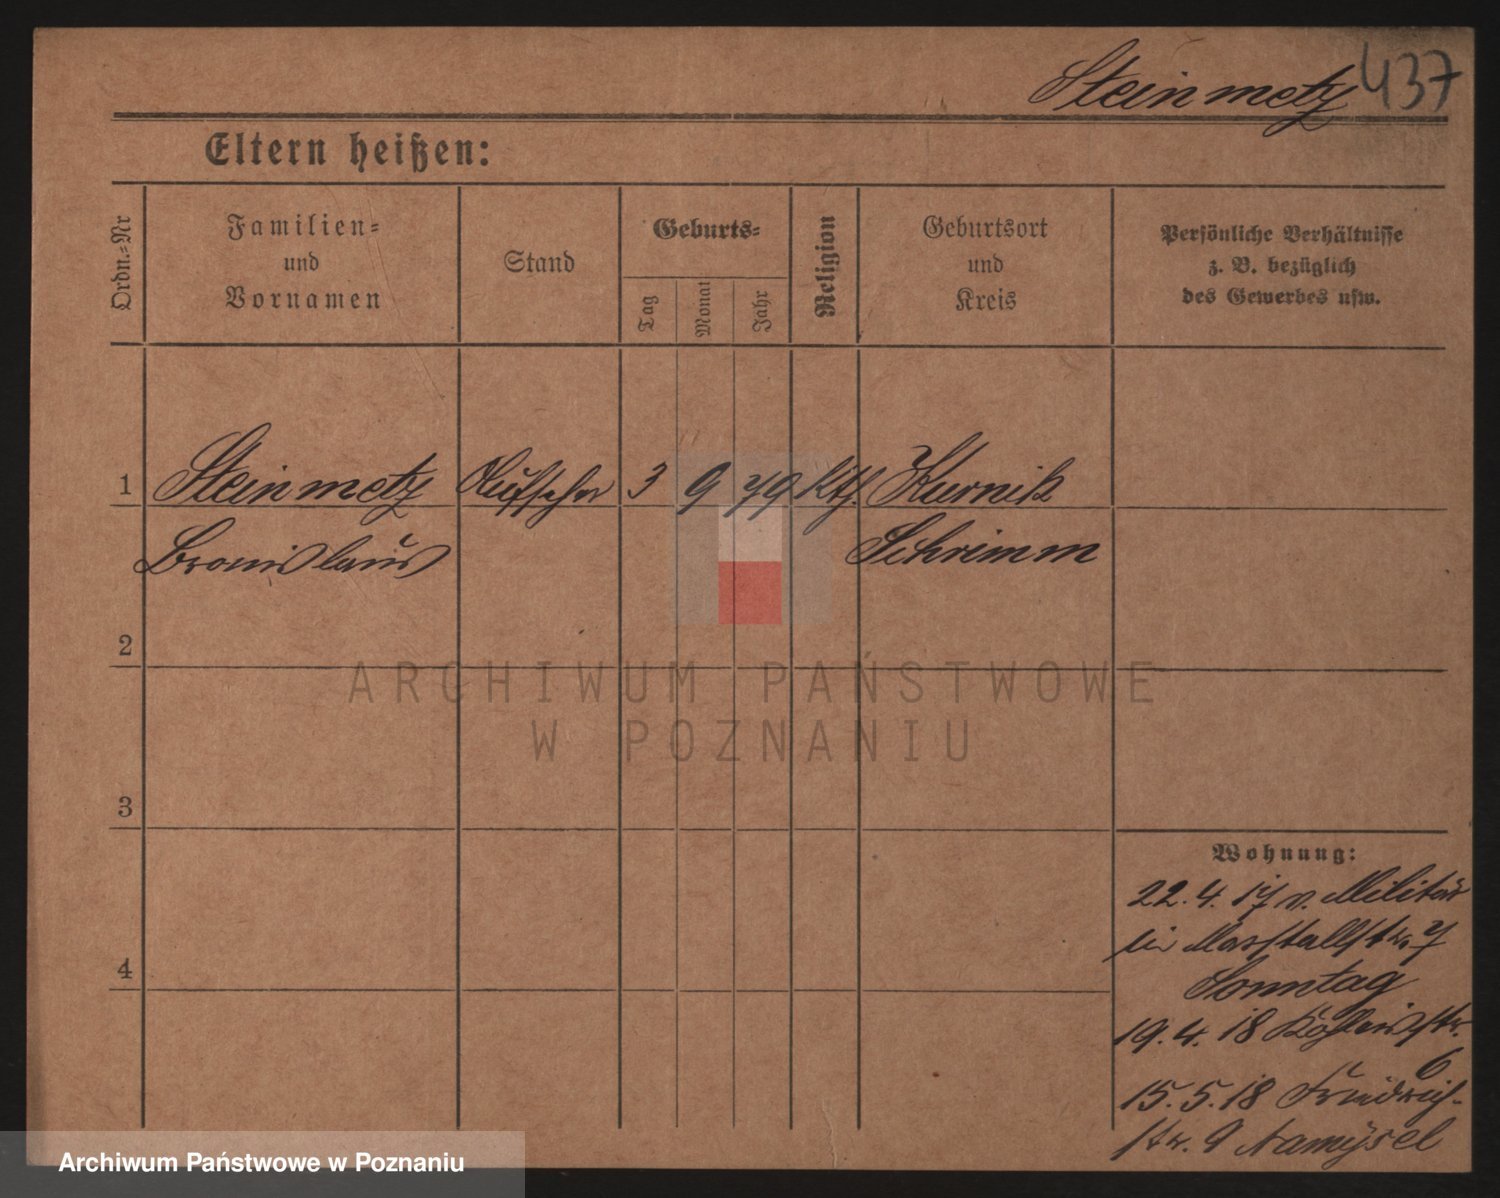 Steinmetz 437
Eltern heißen:
Ordn.-Nr
Familien-
und
Vornamen
Stand
Geburts-
Tag
Monat
Jahr
Religion
Geburtsort
und
Kreis
Persönliche Verhältnisse
z. B. bezüglich
des Gewerbes usw.
1 Steinmetz 3 9 79 kth. Kurnik
Bronislaus Schrimm
2
ARCHIWUM PAŃSTWOWE
W POZNANIU
3
Wohnung:
22.4.17 v. Militär
Marstallstr. 7
4
Sonntag
19.4.18
6
15.5.18 Friedrich-
str. 9 Namysel
Archiwum Państwowe w Poznaniu